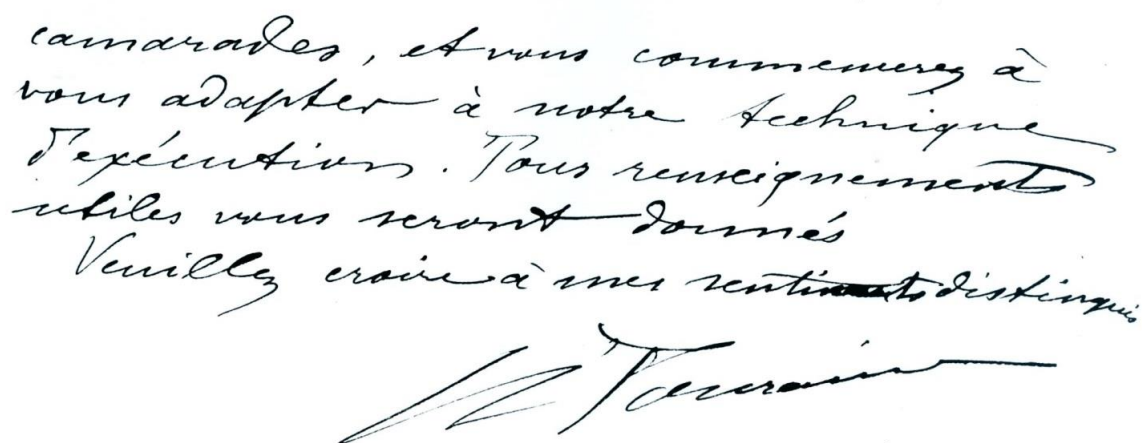 camarades, et vous commencerez à
vous adapter à notre technique
d'exécution. Tous renseignements
utiles vous seront donnés
Veuillez croire à mes sentiments distingués